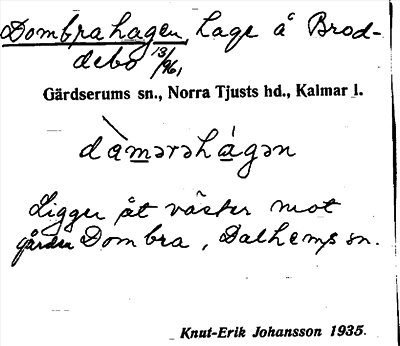 Dombrahagen, Lage å Brod-
debo 13/96,
Gärdserums sn., Norra Tjusts hd., Kalmar l.
dàmərəhágən
Ligger åt väster mot
gården Dombra, Dalhems sn.
Knut-Erik Johansson 1935.